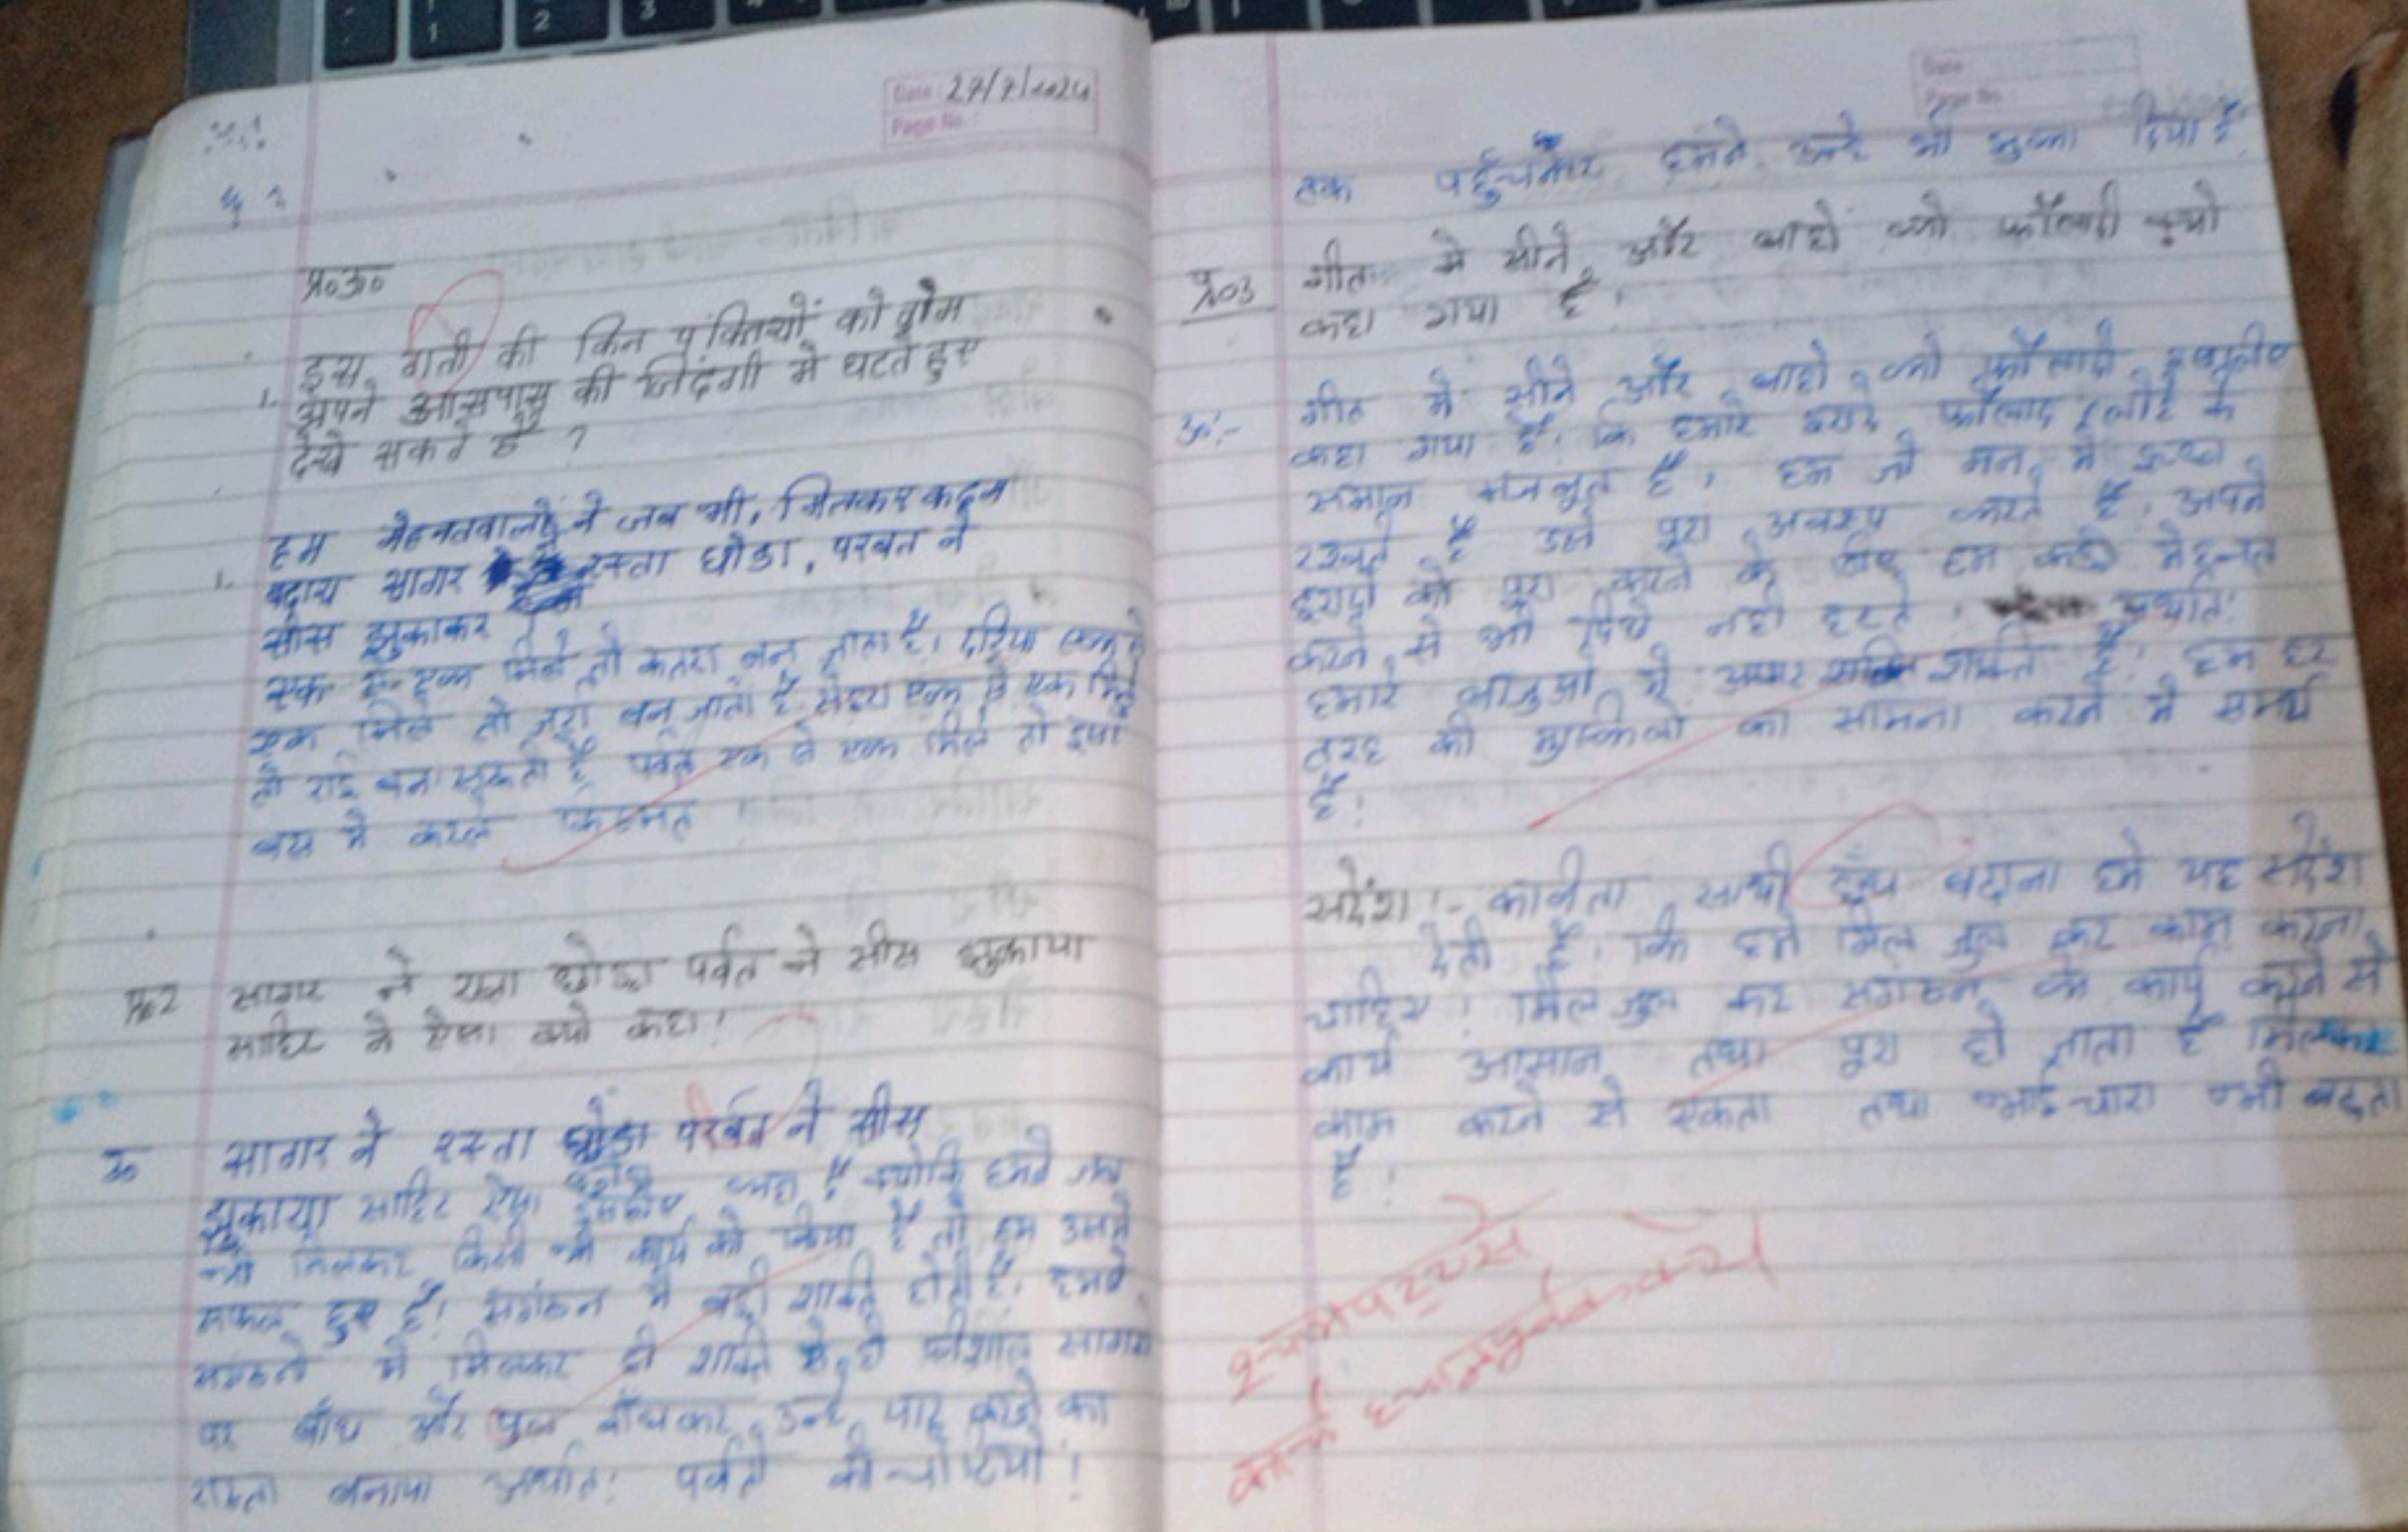 Date: 27/7/2024
Page No.:
प्र0उ0
इस गती की किन पंक्तियों को तुम
1. अपने आसपास की जिंदगी मे घटते हुए
देखे सकते हैं ?
1. हम मेहनतवालों ने जब भी, मिलकर कदम
बढ़ाय सागर रस्ता छोडा, परबत ने
सीस झुकाकर
एक से एक मिले तो कतरा बन जाता है। दरिया एक से
एक मिले तो ज़र्रा बन जाता है सेहरा एक से एक मिले
तो राई बन सकती है पर्वत एक से एक मिले तो इंसा
बस में करले किस्मत
प्र02 सागर ने रास्ता छोडा पर्वत ने सीस झुकाया
साहिर ने ऐसा क्यो कहा!
उ सागर ने रस्ता छोडा परर्बत ने सीस
झुकाया साहिर ऐसा इसलिए कहा है क्योकि हमने जब
भी मिलकर किसी भी कार्य को किया है तो हम उसमे
सफल हुए है। संगठन मे बड़ी शक्ति होती है। हमने
संगठन मे मिलकर ही शक्ति से विशाल सागरो
पर बाँध और पुल बाँधकर उन्हे पार करने का
रास्ता बनाया अर्थात: पर्वतो की चोटियो!
Date:
Page No.:
तक पहुँचकर हमने उन्हे भी झुका दिया है
प्र03 गीत मे सीने और बाहो को फौलादी क्यो
कहा गया है।
उ0:- गीत मे सीने और बाहो को फौलादी इसलिए
कहा गया है। कि हमारे इरादे फौलाद (लोहे के
समान मजबुत है। हम जो मन मे इच्छा
रखते है उसे पूरा अवश्य करते है। अपने
इरादो को पूरा करने के लिए हम कड़ी मेहनत
करने से भी पिछे नही हटते। अर्थात:
हमारे बाजुओ मे अपार शक्ति है। हम हर
तरह की मुश्किलो का सामना करने मे समर्थ
है!
संदेश:- कविता साथी हाथ बढ़ाना हमे यह संदेश
देती है। कि हमे मिल जुल कर काम करना
चाहिए! मिल जुल कर संगठन के कार्य करने से
कार्य आसान तथा पूरा हो जाता है मिलकर
काम करने से एकता तथा भाईचारा भी बढ़ता
है!
कार्य ध्यानपूर्वक करें